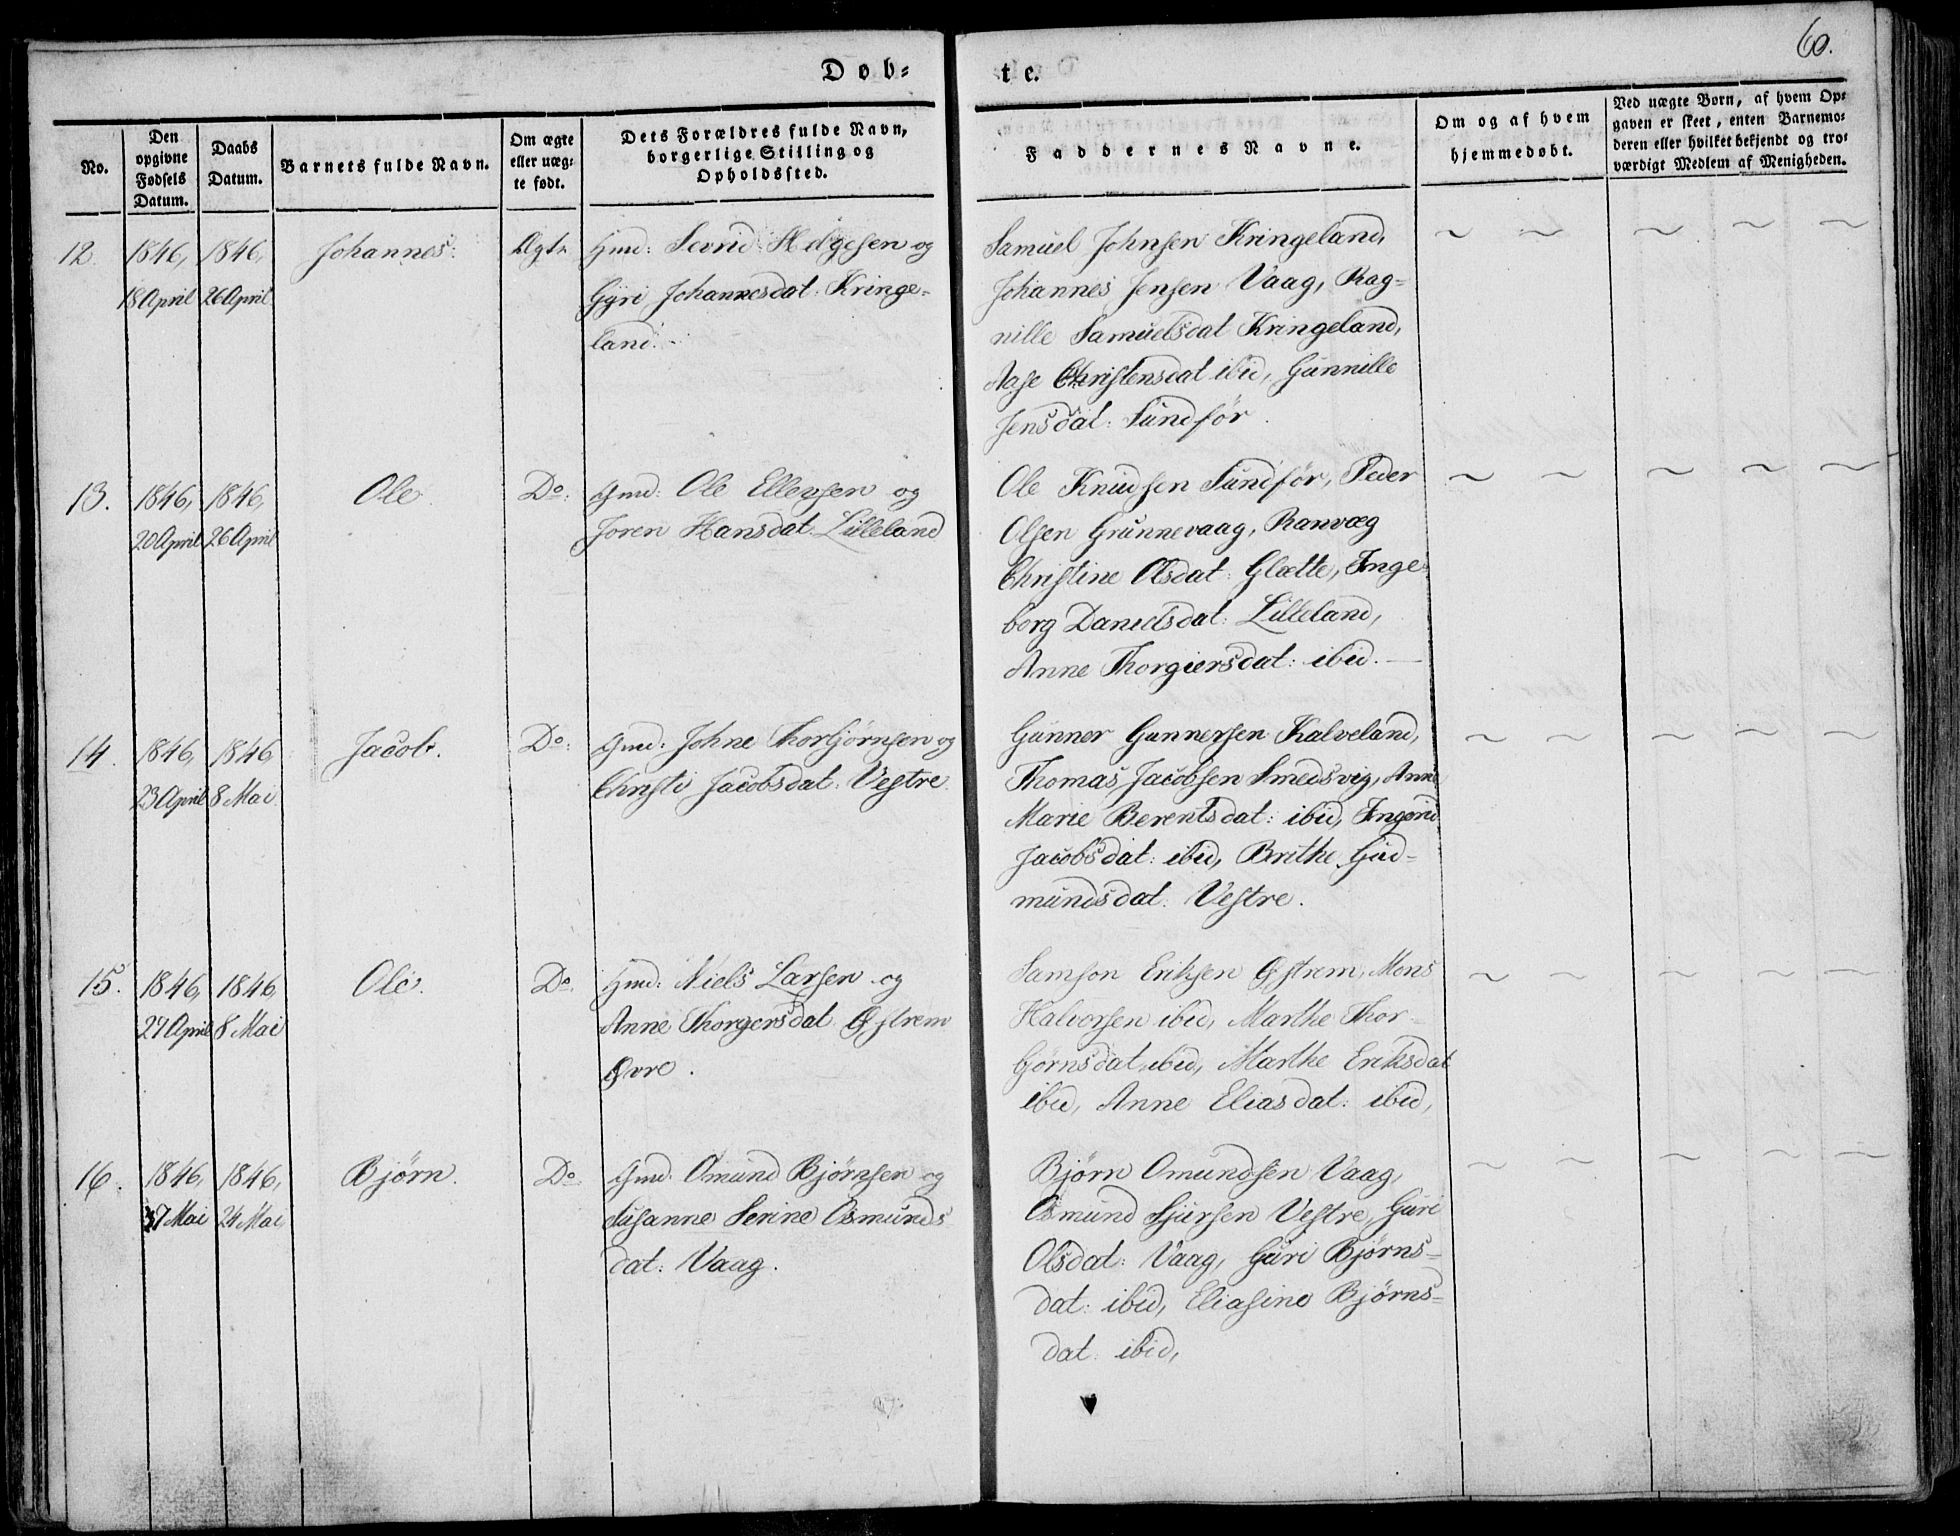 60.
Døb= te.
No.
Den opgivne Fødsels Datum.
Daabs Datum.
Barnets fulde Navn.
Om ægte eller uæg= te født.
Dets Forældres fulde Navn, borgerlige Stilling og Opholdssted.
Faddernes Navne.
Om og af hvem hjemmedøbt.
Ved uægte Børn, af hvem Op= gaven er skeet, enten Barnemo= deren eller hvilket bekjendt og tro= værdigt Medlem af Menigheden.
12.
1846,
18 April
1846,
26 April
Johannes.
Ægte
Gmd: Sevrid Helgesen og
Gÿri Johannesdat: Kringe=
land.
Samuel Johnsen Kringeland,
Johannes Jensen Vaag, Rag=
nille Samuelsdat Kringeland,
Aase Christensdat ibid, Gunnille
Jensdat: Sundfør.
13.
1846,
20 April
1846,
26 April
Ole
Do:
Gmd: Ole Ellevsen og
Joren Hansdat: Lilleland
Ole Knudsen Sundfør, Peder
Olsen Grunnevaag, Ranvæg
Christine Olsdat: Glætte, Inge
borg Danielsdat: Lilleland,
Anne Thorgiersdat: ibid. —
14.
1846,
23 April
1846,
8 Mai
Jacob.
Do:
Gmd: Johne Thorbjørnsen og
Christi Jacobsdat: Vestre.
Gunner Gunnersen Kalveland,
Thomas Jacobsen Smedsvig, Anne
Marie Berentsdat: ibid, Ingerid
Jacobsdat: ibid, Brithe Gud=
mundsdat: Vestre.
15.
1846,
27 April
1846,
8 Mai
Ole.
Do.
Gmd: Niels Larsen og
Anne Thorgersdat Østrem
Øvre.
Samson Eriksen Østrem, Mons
Halvorsen ibid, Marthe Thor
bjørnsdat ibid, Marthe Eriksdat
ibid, Anne Eliasdat: ibid,
16.
1846,
7 Mai
1846,
24 Mai
Bjørn.
Do.
Gmd: Omund Bjørnsen og
Susanne Serine Osmunds
dat: Vaag.
Bjørn Omundsen Vaag,
Osmund Sjursen Vestre, Guri
Olsdat: Vaag, Guri Bjørns=
dat: ibid, Eliasine Bjørns=
dat: ibid,